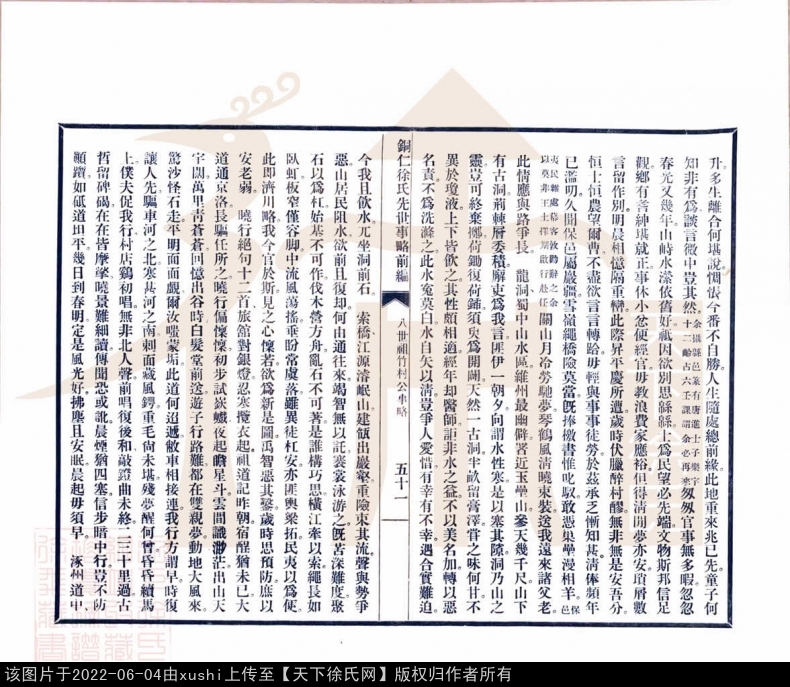 升多生離合何堪說惆悵今番不自勝人生隨處總前緣此地重來兆已先童子何
知非有為談言微中豈其然
春光又幾年山時水瀠依舊好祗因欲別思緜緜上為民望必先端文物斯邦信足
觀鄉有善紳堪就正事休小忽便經官毋教浪費家應裕但得清閒夢亦安瑣屑數
言留作別明晨相憶隔重巒此際昇平慶所遭歲時伏臘醉村醪無非無是安吾分
恒士恒農望爾曹不盡欲言言轉跲毋輕與事事徒勞於茲承乏慚知甚清俸頻年
已濫叨久聞保邑屬嚴疆雪嶺繩橋險莫當旣捧檄書惟叱馭敢憑巢壘漫相羊
此情應與路爭長 龍洞蜀中山水區維州最幽僻署近玉壘山參天幾千尺山下
有古洞荊棘層委積廨吏為我言匪伊一朝夕向謂水性寒是以塞其隙洞乃山之
靈豈可終棄擲荷鋤復荷鍤須臾為開闢天然一古洞半畝留膏澤甞之味何甘不
異於瓊液上下皆飲之其性頗相適經年却醫師詎非水之益不以美名加轉以惡
名責不為洗滌之此水寃莫白水自矢以清豈爭人愛惜有幸有不幸遇合實難迫
銅仁徐氏先世事略前編 八世祖竹村公事略 五十一
今我且飲水兀坐洞前石 索橋江源濬岷山建瓴出嚴壑重險束其流聲與勢爭
惡山居民阻水欲前且復却何由通往來竭智無以託褰裳泳游之旣苦深難度聚
石以為杠始基不可作伐木營方舟亂石不可著是誰構巧思橫江牽以索繩長如
臥虹板窄僅容脚中流風蕩搖垂盼常虞落雖異徒杠安亦匪輿梁拓民夷以為便
此即濟川略我今官於斯見之心懍若欲為新是圖禹智惡其鑿歲時思預防庶以
安老弱 曉行絕句十二首旅館對銀燈忍寒攬衣起祖道記昨朝宿酲猶未已大
道通京洛長驅任所之曉行偏懷懷初步試嶔巇夜起瞻星斗雲間識渺茫出山天
宇闊萬里靑蒼蒼回憶出谷時白髮堂前送遊子行路難都在雙親夢動地大風來
驚沙怪石走平明面面覷爾汝嗤蒙垢此道何迢遞敝車相接連我行方謂早時復
讓人先驅車河之北寒甚河之南刺面裁風鍔重毛尙未堪殘夢醒何曾昏昏續馬
上僕夫促我行村店鷄初唱無非北人聲前唱復後和敲鐙曲未終二三十里過古
哲留碑碣在在皆摩挲曉景難細讀傳聞恐或訛晨煙猶四塞信步暗中行豈不防
顚躓如砥道坦平幾日到春明定是風光好拂塵且安眠晨起毋須早 涿州道中
该图片于2022-06-04由xushi上传至【天下徐氏网】版权归作者所有